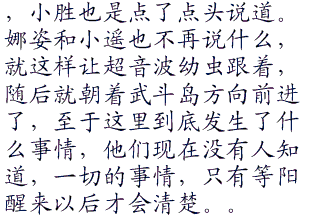 ，小胜也是点了点头说道。
娜姿和小遥也不再说什么，
就这样让超音波幼虫跟着，
随后就朝着武斗岛方向前进
了，至于这里到底发生了什
么事情，他们现在没有人知
道，一切的事情，只有等阳
醒来以后才会清楚。。